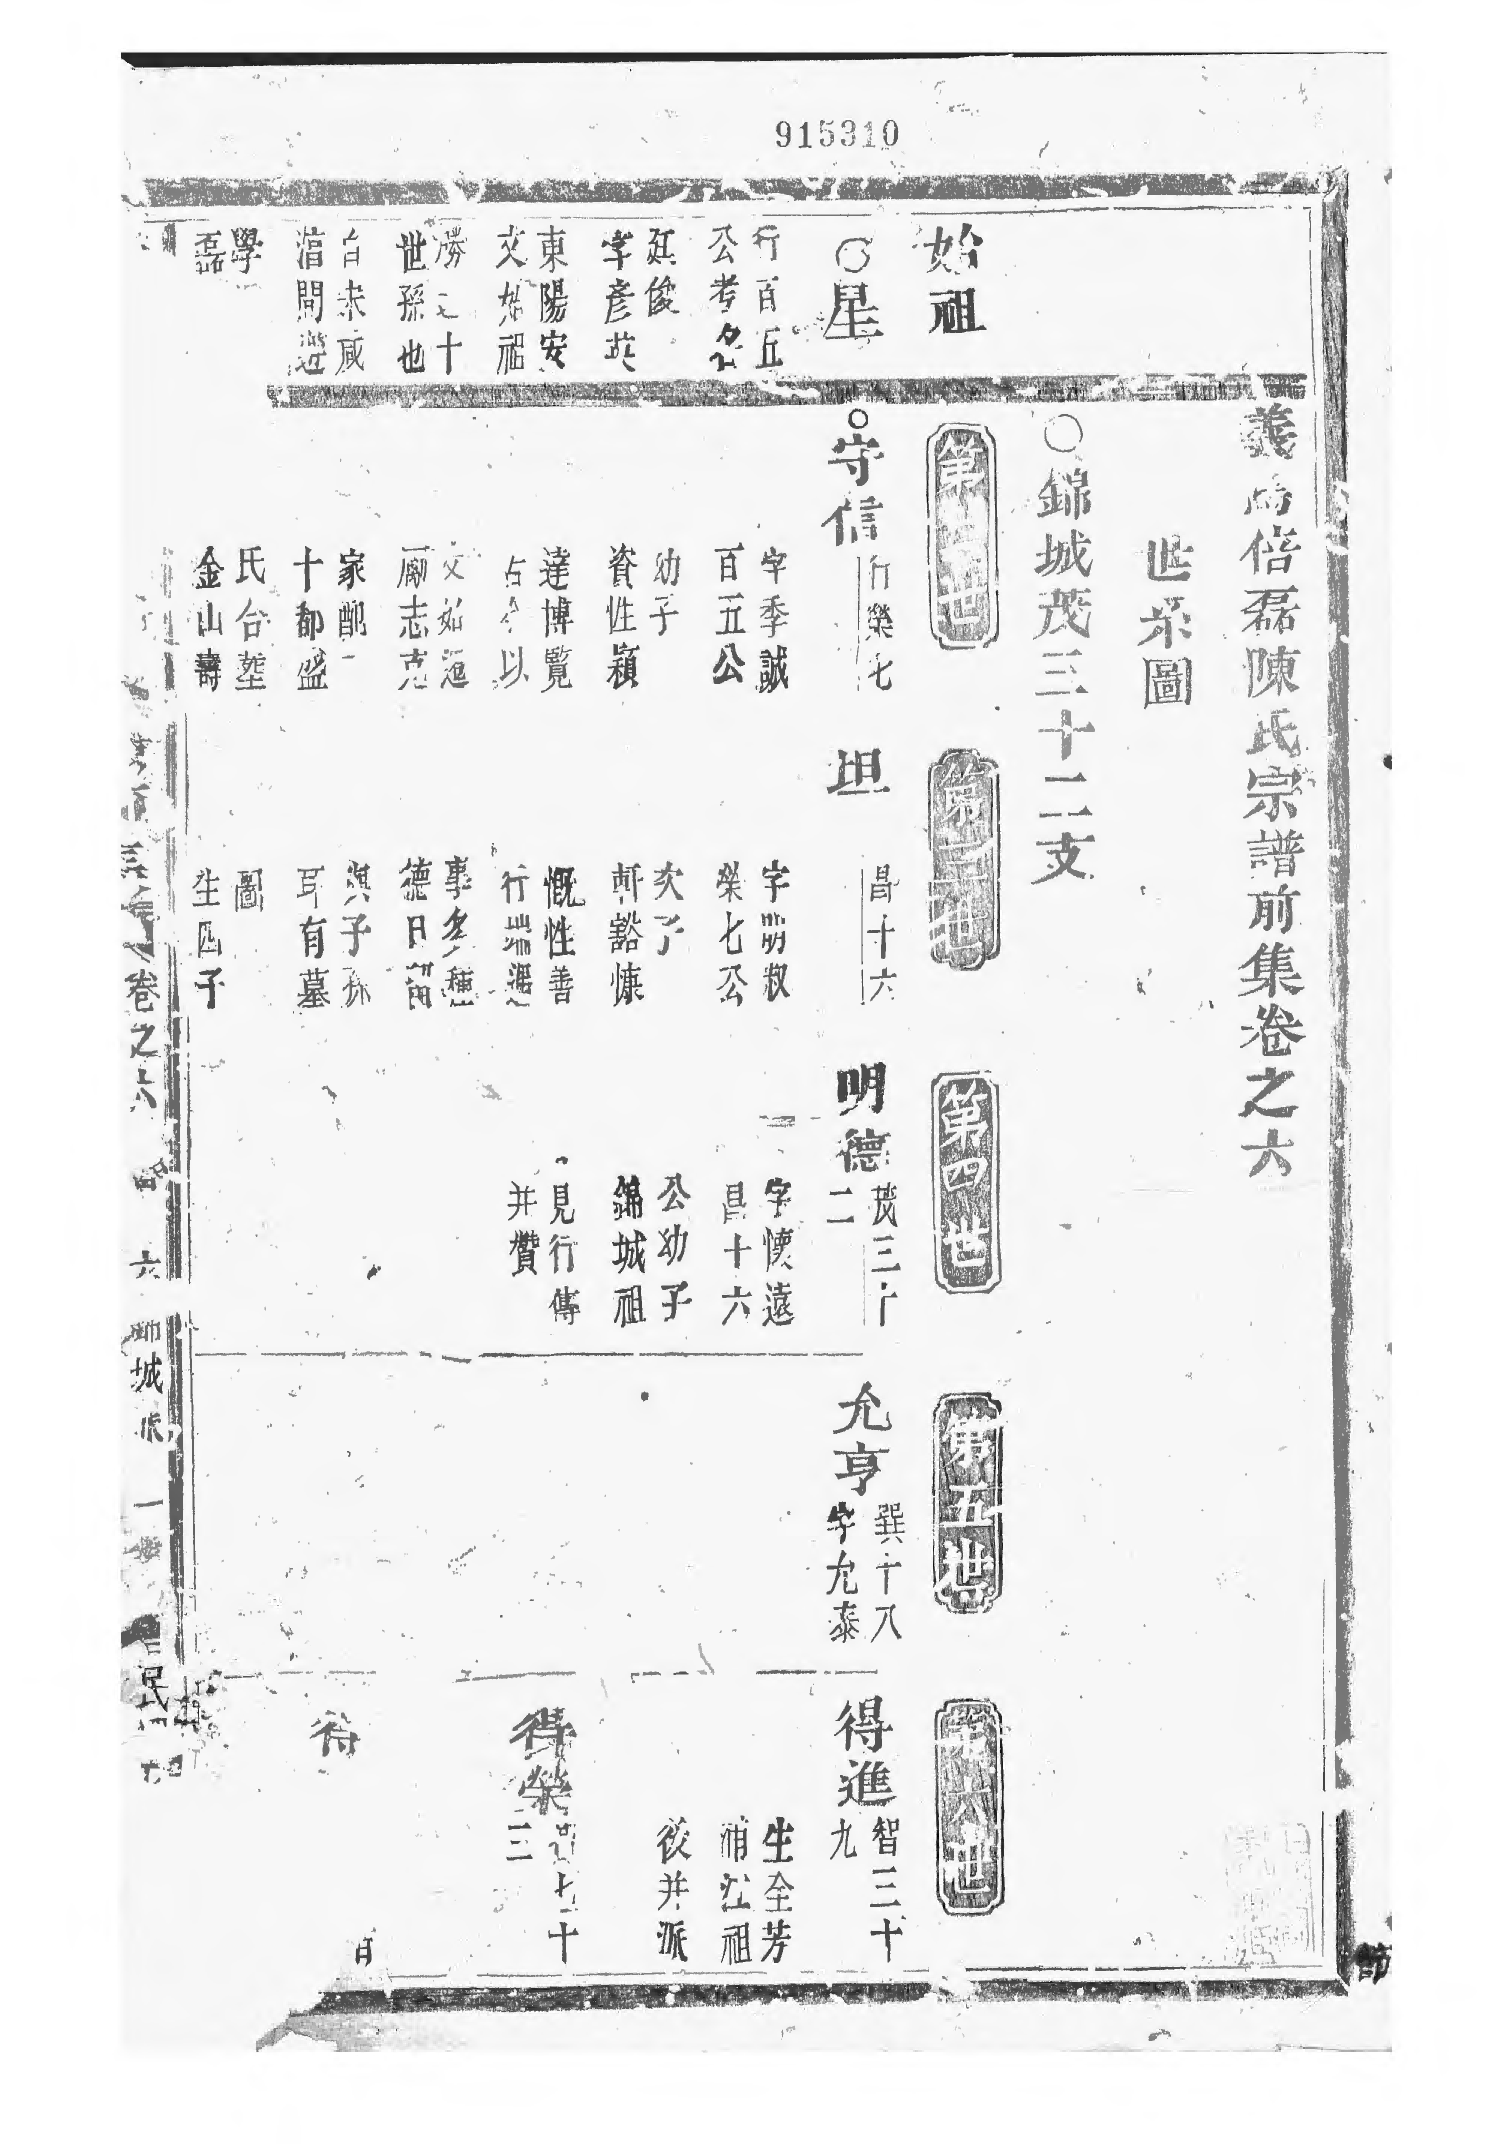 915310
義烏倍磊陳氏宗譜前集卷之六
世系圖
○錦城茂三十二支
始祖
第二世
第三世
第四世
第五世
第六世
○星
行百五
公考名
廷俊
字彦英
東陽安
文始祖
勝之十
世孫也
自宋咸
淳間遊
學
磊
○守信
行榮七
字季誠
百五公
幼子
資性穎
達博覽
古今以
文始遷
厥志克
家配一
十都盛
氏合塟
金山壽
坦
昌十六
字明叔
榮七公
次子
軒豁慷
慨性善
行端遇
事多種
德日留
與子孫
耳有墓
圖
生四子
明德
茂三十
二
字懷遠
昌十六
公幼子
錦城祖
見行傳
并贊
允亨
巽十八
字允泰
得進
智三十
九
生全芳
浦江祖
後并派
得榮
十
三
得
卷之六
六
城派
一
民
節